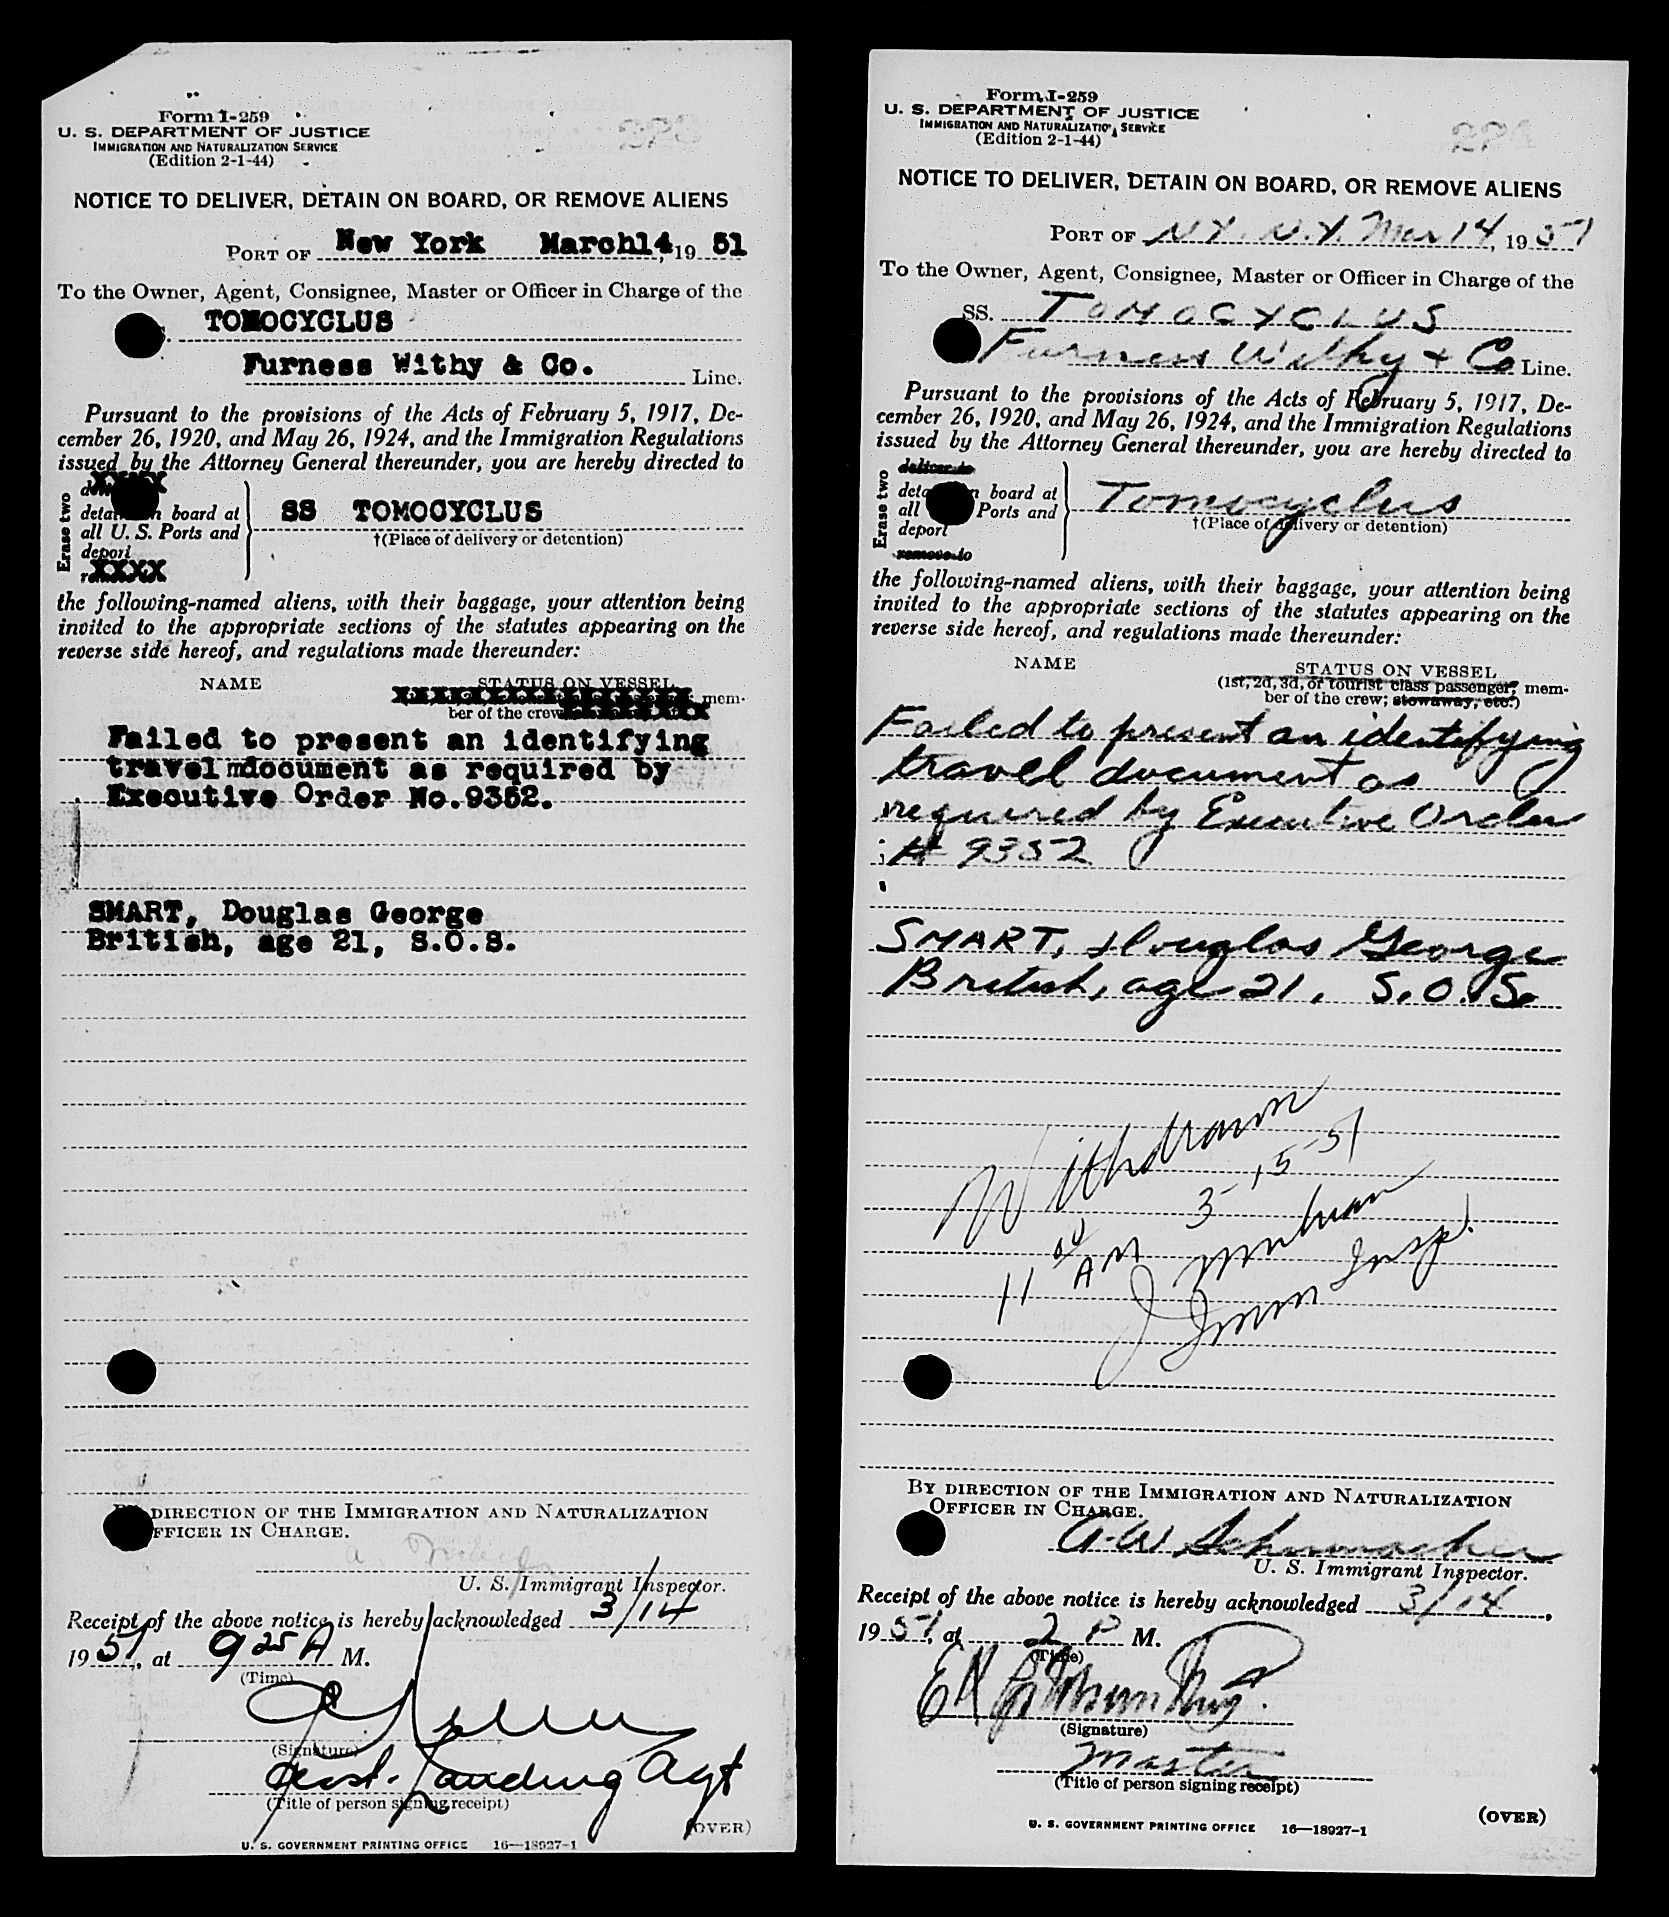 Form I-259
U. S. DEPARTMENT OF JUSTICE
IMMIGRATION AND NATURALIZATION SERVICE
(Edition 2-1-44)
NOTICE TO DELIVER, DETAIN ON BOARD, OR REMOVE ALIENS
PORT OF New York March14, 19 51
To the Owner, Agent, Consignee, Master or Officer in Charge of the
TOMOCYCLUS
Furness Withy & Co. Line.
Pursuant to the provisions of the Acts of February 5, 1917, De-
cember 26, 1920, and May 26, 1924, and the Immigration Regulations
issued by the Attorney General thereunder, you are hereby directed to
Erase two
XXXX
board at
all U. S. Ports and
deport
XXXX
SS TOMOCYCLUS
†(Place of delivery or detention)
the following-named aliens, with their baggage, your attention being
invited to the appropriate sections of the statutes appearing on the
reverse side hereof, and regulations made thereunder:
NAME STATUS ON VESSEL
mem-
ber of the crew
Failed to present an identifying
travel mdocument as required by
Executive Order No.9352.
SMART, Douglas George
British, age 21, S.O.S.
DIRECTION OF THE IMMIGRATION AND NATURALIZATION
OFFICER IN CHARGE.
U. S. Immigrant Inspector.
Receipt of the above notice is hereby acknowledged 3/14
1951, at 9 25 A M.
(Time)
(Signature)
Asst. Landing Agt
(Title of person signing receipt)
(OVER)
U. S. GOVERNMENT PRINTING OFFICE 16—18927-1
Form I-259
U. S. DEPARTMENT OF JUSTICE
IMMIGRATION AND NATURALIZATION SERVICE
(Edition 2-1-44)
NOTICE TO DELIVER, DETAIN ON BOARD, OR REMOVE ALIENS
PORT OF N.Y. N.Y. Mar 14, 19 51
To the Owner, Agent, Consignee, Master or Officer in Charge of the
SS. TOMOCYCLUS
Furness Withy & Co Line.
Pursuant to the provisions of the Acts of February 5, 1917, De-
cember 26, 1920, and May 26, 1924, and the Immigration Regulations
issued by the Attorney General thereunder, you are hereby directed to
Erase two
deliver to
board at
all Ports and
deport
remove to
Tomocyclus
†(Place of delivery or detention)
the following-named aliens, with their baggage, your attention being
invited to the appropriate sections of the statutes appearing on the
reverse side hereof, and regulations made thereunder:
NAME STATUS ON VESSEL
(1st, 2d, 3d, or tourist class passenger, mem-
ber of the crew; stowaway, etc.)
Failed to present an identifying
travel document as
required by Executive Order
# 9352
SMART, Douglas George
British, age 21, S.O.S.
Withdrawn
3-15-51
11 00 AM
Imm Insp.
BY DIRECTION OF THE IMMIGRATION AND NATURALIZATION
OFFICER IN CHARGE.
A.W. Schumacher
U. S. Immigrant Inspector.
Receipt of the above notice is hereby acknowledged 3/14,
1951, at 2 P M.
(Time)
(Signature)
Master
(Title of person signing receipt)
(OVER)
U. S. GOVERNMENT PRINTING OFFICE 16—18927-1